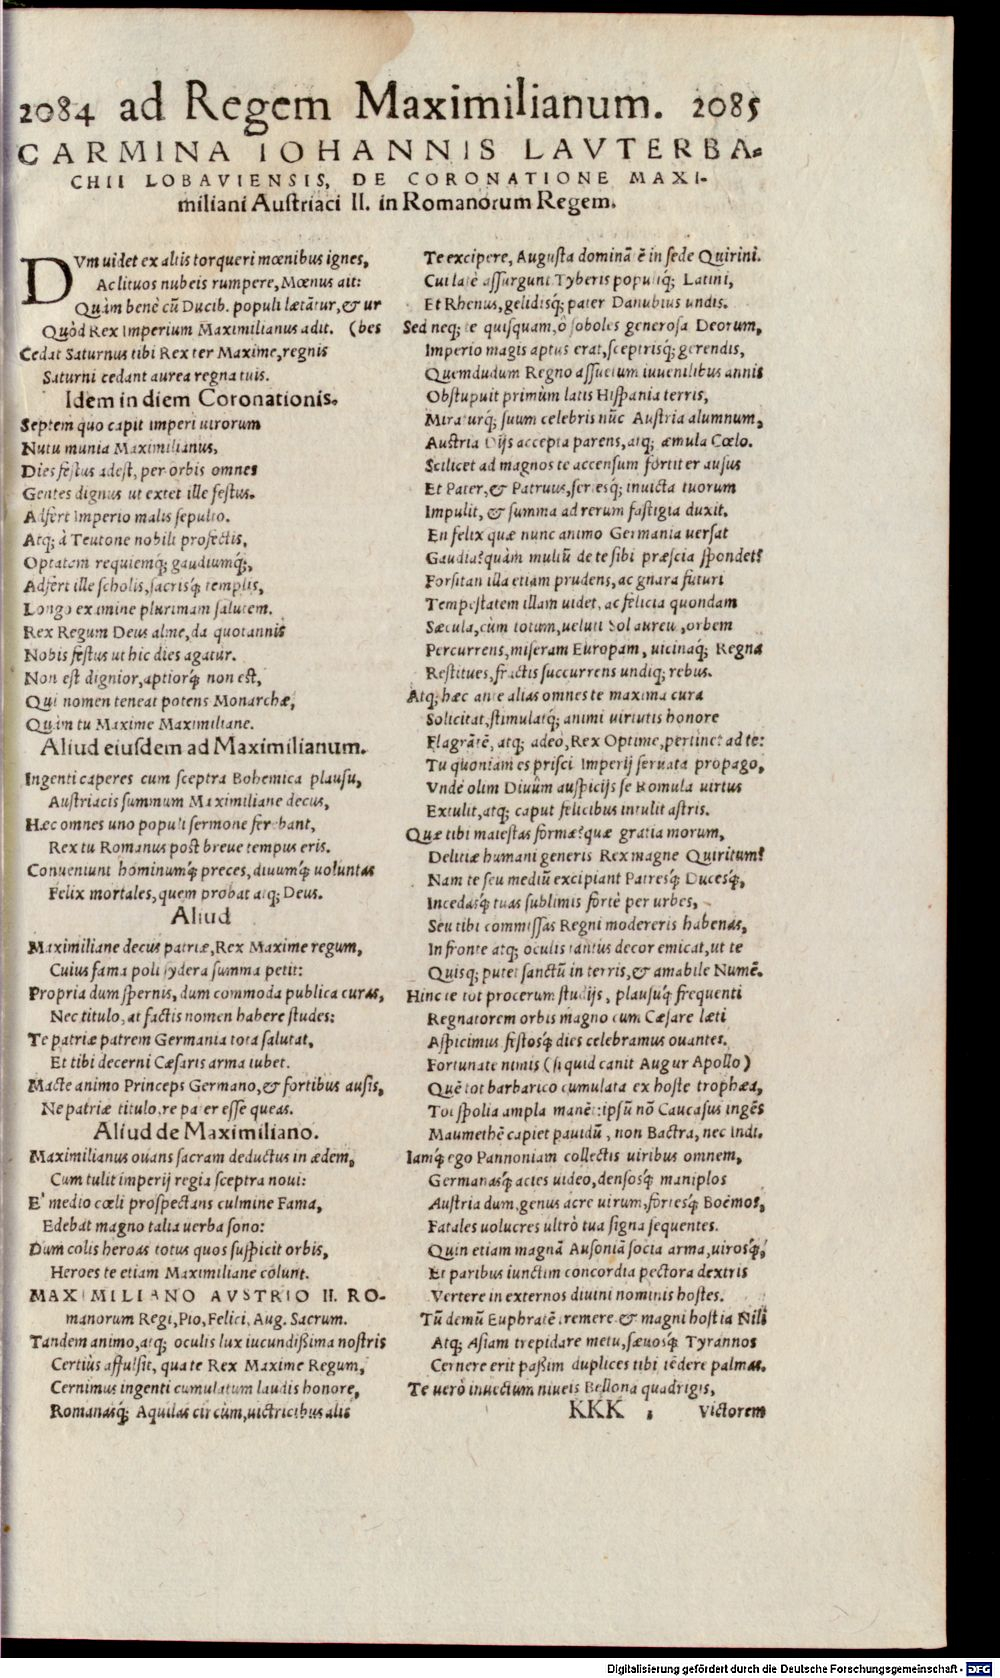 2084 ad Regem Maximilianum. 2085
CARMINA IOHANNIS LAVTERBA-
CHII LOBAVIENSIS, DE CORONATIONE MAXI-
miliani Austriaci II. in Romanorum Regem.
DVm uidet ex altis torqueri mœnibus ignes,
Ac lituos nubeis rumpere, Mœnus ait:
Quàm benè cũ Ducib. populi lætãtur, & ur
Quòd Rex Imperium Maximilianus adit. (bes
Cedat Saturnus tibi Rex ter Maxime, regnis
Saturni cedant aurea regna tuis.
Idem in diem Coronationis.
Septem quo capit imperi uirorum
Nutu munia Maximilianus,
Dies festus adest, per orbis omnes
Gentes dignus ut extet ille festus.
Adfert Imperio malis sepulto.
Atq; à Teutone nobili profectis,
Optatam requiemq́; gaudiumq́;,
Adfert ille scholis, sacrisq́; templis,
Longo examine plurimam salutem.
Rex Regum Deus alme, da quotannis
Nobis festus ut hic dies agatur.
Non est dignior, aptiorq́; non est,
Qui nomen teneat potens Monarchæ,
Quàm tu Maxime Maximiliane.
Aliud eiusdem ad Maximilianum.
Ingenti caperes cum sceptra Bohemica plausu,
Austriacis summum Maximiliane decus,
Hæc omnes uno populi sermone ferebant,
Rex tu Romanus post breue tempus eris.
Conueniunt hominumq́; preces, diuumq́; uoluntas
Felix mortales, quem probat atq; Deus.
Aliud
Maximiliane decus patriæ, Rex Maxime regum,
Cuius fama poli sydera summa petit:
Propria dum spernis, dum commoda publica curas,
Nec titulo, at factis nomen habere studes:
Te patriæ patrem Germania tota salutat,
Et tibi decerni Cæsaris arma iubet.
Macte animo Princeps Germano, & fortibus ausis,
Ne patriæ titulo, re pater esse queas.
Aliud de Maximiliano.
Maximilianus ouans sacram deductus in ædem,
Cum tulit imperij regia sceptra noui:
E' medio cœli prospectans culmine Fama,
Edebat magno talia uerba sono:
Dum colis heroas totus quos suspicit orbis,
Heroes te etiam Maximiliane colunt.
MAXIMILIANO AVSTRIO II. RO-
manorum Regi, Pio, Felici, Aug. Sacrum.
Tandem animo, atq; oculis lux iucundißima nostris
Certiùs affulsit, qua te Rex Maxime Regum,
Cernimus ingenti cumulatum laudis honore,
Romanasq́; Aquilas circùm, uictricibus alis
Te excipere, Augusta dominã ẽ in sede Quirini.
Cui latè assurgunt Tyberis populiq́; Latini,
Et Rhenus, gelidisq́; pater Danubius undis.
Sed neq; te quisquam, ô soboles generosa Deorum,
Imperio magis aptus erat, sceptrisq́; gerendis,
Quemdudum Regno assuetum iuuenilibus annis
Obstupuit primùm latis Hispania terris,
Miraturq́; suum celebris nũc Austria alumnum,
Austria Dijs accepta parens, atq; æmula Cœlo.
Scilicet ad magnos te accensum fortiter ausus
Et Pater, & Patruus, seriesq́; inuicta tuorum
Impulit, & summa ad rerum fastigia duxit.
En felix quæ nunc animo Germania uersat
Gaudia? quàm multũ de te sibi præscia spondet?
Forsitan illa etiam prudens, ac gnara futuri
Tempestatem illam uidet, ac felicia quondam
Sæcula, cùm totum, ueluti Sol aureu, orbem
Percurrens, miseram Europam, uicinaq́; Regna
Restitues, fractis succurrens undiq; rebus.
Atq; hæc ante alias omnes te maxima cura
Solicitat, stimulatq́; animi uirtutis honore
Flagrãtẽ, atq; adeò, Rex Optime, pertinet ad te:
Tu quoniam es prisci Imperij seruata propago,
Vnde olim Diuûm auspicijs se Romula uirtus
Extulit, atq; caput felicibus intulit astris.
Quæ tibi maiestas formæ? quæ gratia morum,
Delitiæ humani generis Rex magne Quiritum?
Nam te seu mediũ excipiant Patresq́; Ducesq́;,
Incedasq́; tuas sublimis fortè per urbes,
Seu tibi commissas Regni modereris habenas,
In fronte atq; oculis tantus decor emicat, ut te
Quisq; putet sanctũ in terris, & amabile Numẽ.
Hinc te tot procerum studijs, plausuq́; frequenti
Regnatorem orbis magno cum Cæsare læti
Aspicimus festosq́; dies celebramus ouantes.
Fortunate nimis (si quid canit Augur Apollo)
Quẽ tot barbarico cumulata ex hoste trophæa,
Tot spolia ampla manẽt: ipsũ nõ Caucasus ingẽs
Maumethẽ capiet pauidũ, non Bactra, nec Indi.
Iamq́; ego Pannoniam collectis uiribus omnem,
Germanasq́; acies uideo, densosq́; maniplos
Austriadum, genus acre uirum, fortesq́; Boëmos,
Fatales uolucres ultrò tua signa sequentes.
Quin etiam magnã Ausoniã socia arma, uirosq́;,
Et paribus iunctim concordia pectora dextris
Vertere in externos diuini nominis hostes.
Tũ demũ Euphratẽ tremere & magni hostia Nili
Atq; Asiam trepidare metu, sæuosq́; Tyrannos
Cernere erit paßim duplices tibi tẽdere palmas.
Te uerò inuectum niueis Bellona quadrigis,
KKK ;
Victorem
Digitalisierung gefördert durch die Deutsche Forschungsgemeinschaft - DFG